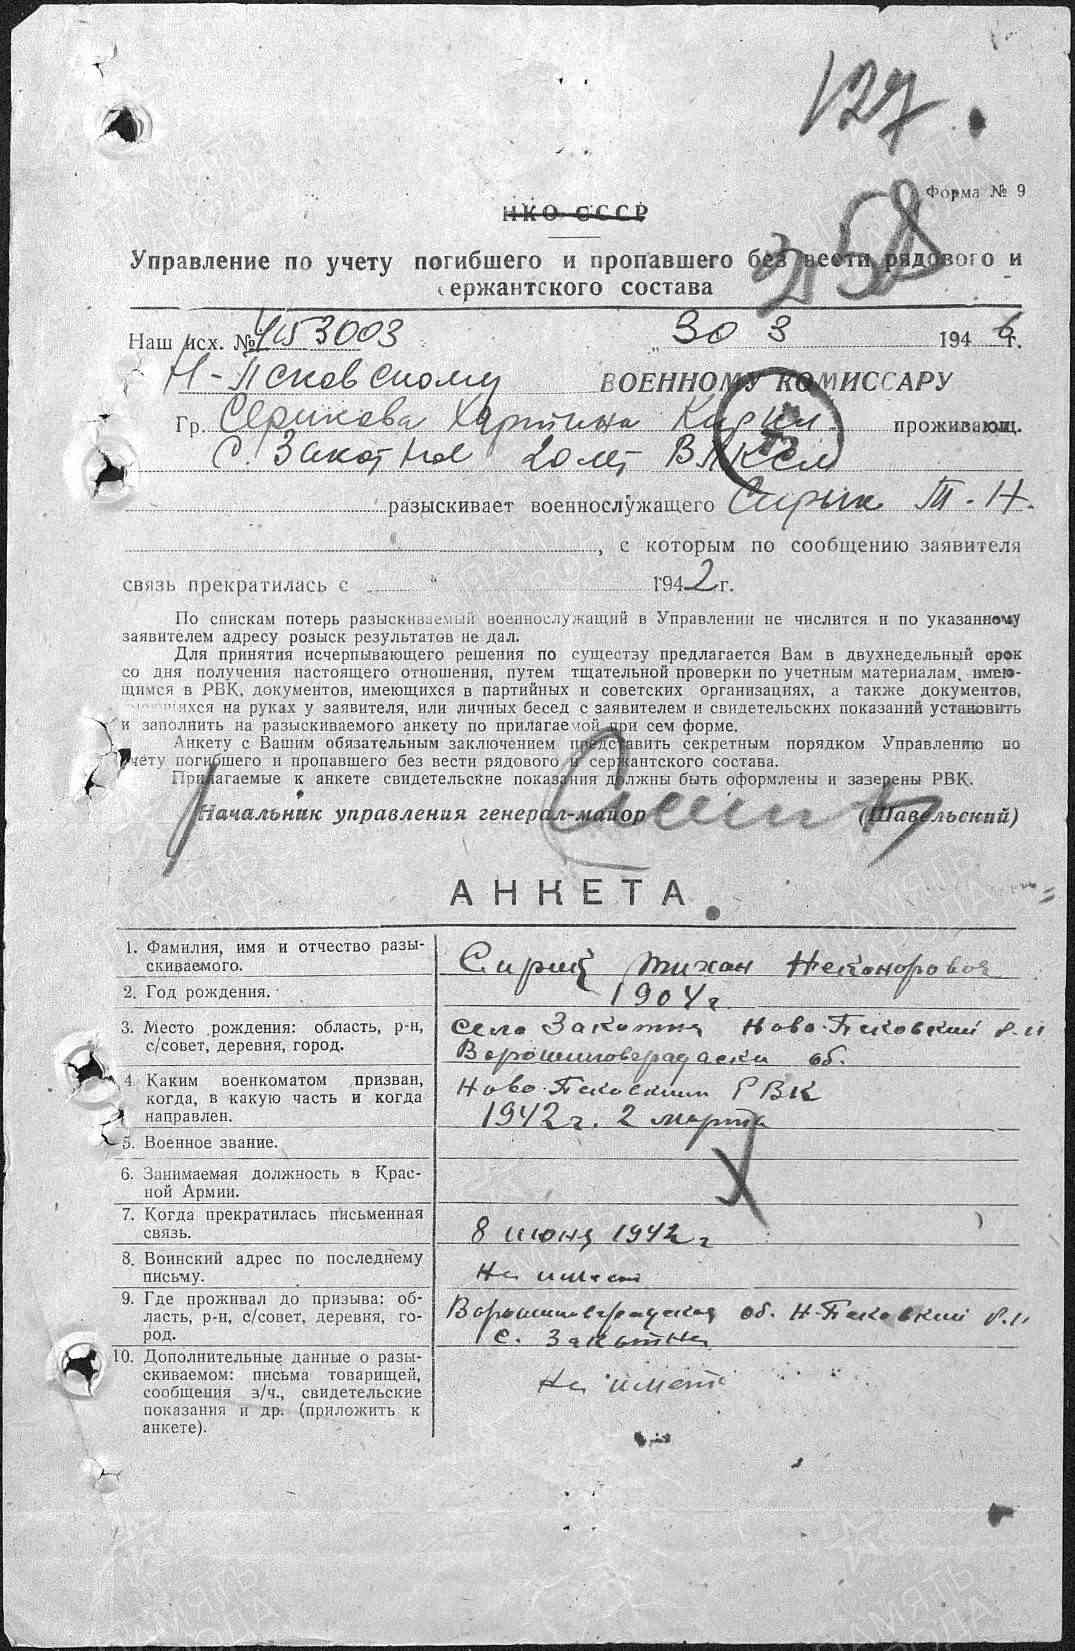 127
Форма № 9
НКО СССР
358
Управление по учету погибшего и пропавшего без вести рядового и
сержантского состава
Наш исх. № 153003 „ 30 3 1946 г.
Н-Псковскому ВОЕННОМУ КОМИССАРУ
Гр. Серикова Хартина проживающ.
с. Закотное 20 лет ВЛКСМ
разыскивает военнослужащего Сирык Т-Н.
, с которым по сообщению заявителя
связь прекратилась с „ 1942 г.
По спискам потерь разыскиваемый военнослужащий в Управлении не числится и по указанному
заявителем адресу розыск результатов не дал.
Для принятия исчерпывающего решения по существу предлагается Вам в двухнедельный срок
со дня получения настоящего отношения, путем тщательной проверки по учетным материалам, имею-
щимся в РВК, документов, имеющихся в партийных и советских организациях, а также документов,
имеющихся на руках у заявителя, или личных бесед с заявителем и свидетельских показаний установить
и заполнить на разыскиваемого анкету по прилагаемой при сем форме.
Анкету с Вашим обязательным заключением представить секретным порядком Управлению по
учету погибшего и пропавшего без вести рядового и сержантского состава.
Прилагаемые к анкете свидетельские показания должны быть оформлены и заверены РВК.
Начальник управления генерал-майор (Шавельский)
АНКЕТА
1. Фамилия, имя и отчество разы-
скиваемого.
Сириц Тихан Неконорович
2. Год рождения.
1904 г
3. Место рождения: область, р-н,
с/совет, деревня, город.
Село Закотня Ново-Псковский р.н
Ворошиловградски об.
4. Каким военкоматом призван,
когда, в какую часть и когда
направлен.
Ново-Псковским РВК
1942 г. 2 марта
5. Военное звание.
6. Занимаемая должность в Крас-
ной Армии.
7. Когда прекратилась письменная
связь.
8 июня 1942 г
8. Воинский адрес по последнему
письму.
Не имеет
9. Где проживал до призыва: об-
ласть, р-н, с/совет, деревня, го-
род.
Ворошиловградская об. Н-Псковский р.н
с. Закотня
10. Дополнительные данные о разы-
скиваемом: письма товарищей,
сообщения з/ч., свидетельские
показания и др. (приложить к
анкете).
Не имеет